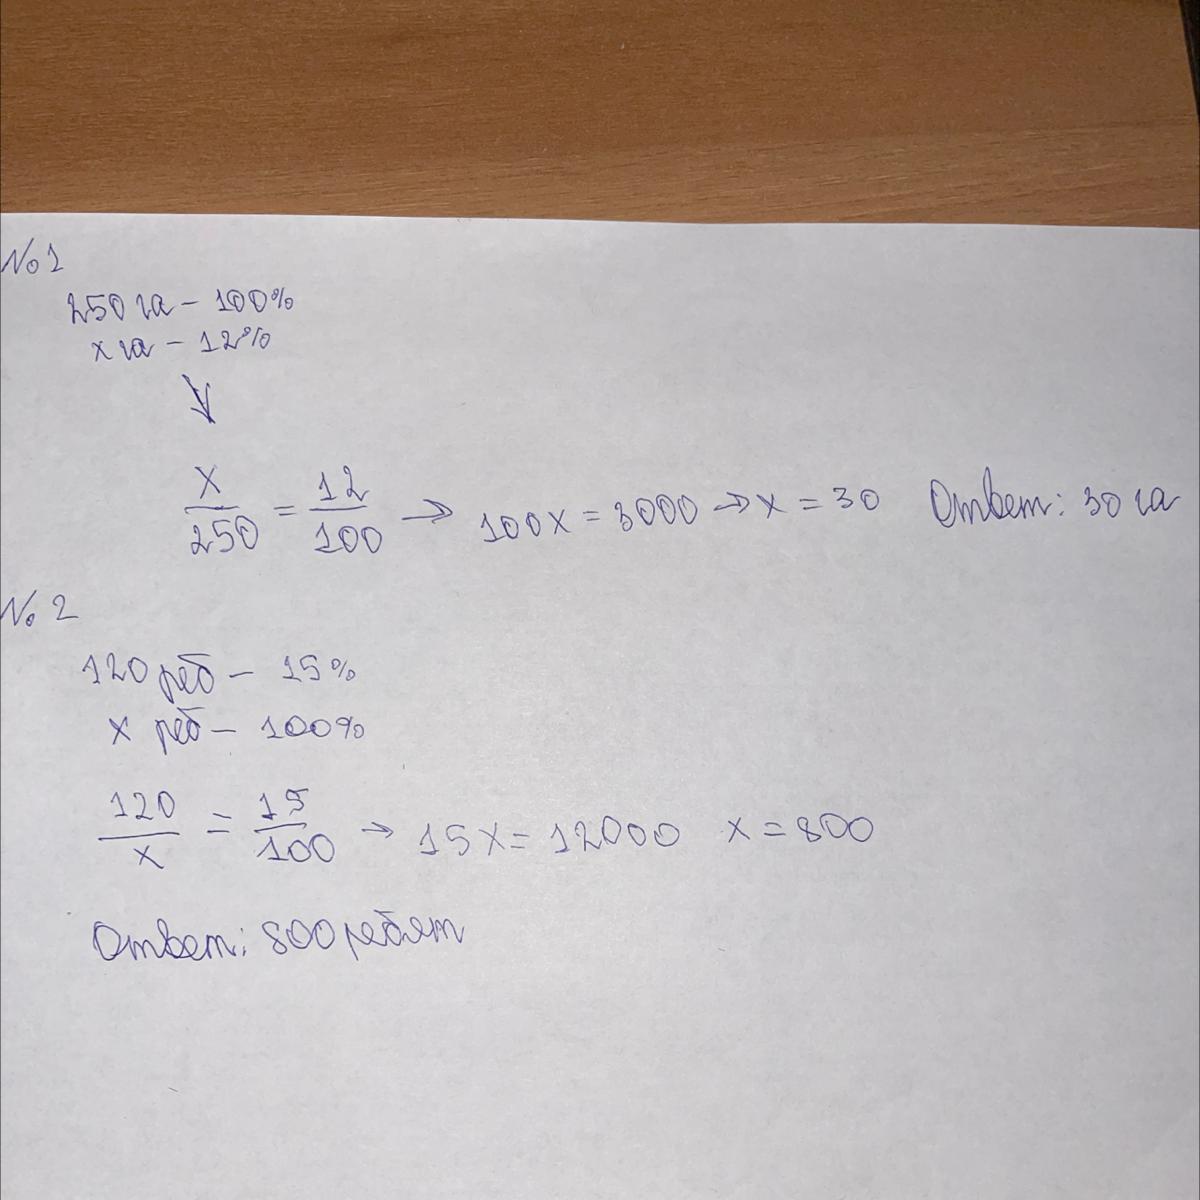 №1
250 га – 100%
x га – 12%
x/250 = 12/100 → 100x = 3000 → x = 30 Ответ: 30 га
№ 2
120 реб – 15%
x реб – 100%
120/x = 15/100 → 15x = 12000 x = 800
Ответ: 800 ребят